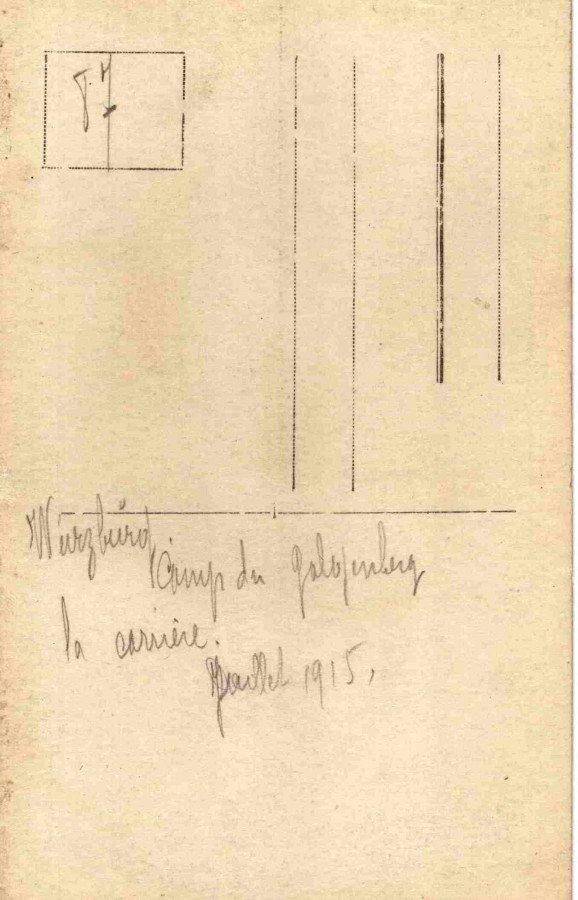 Würzbürd
Camp du Galgenberg
la carrière.
Juillet 1915.